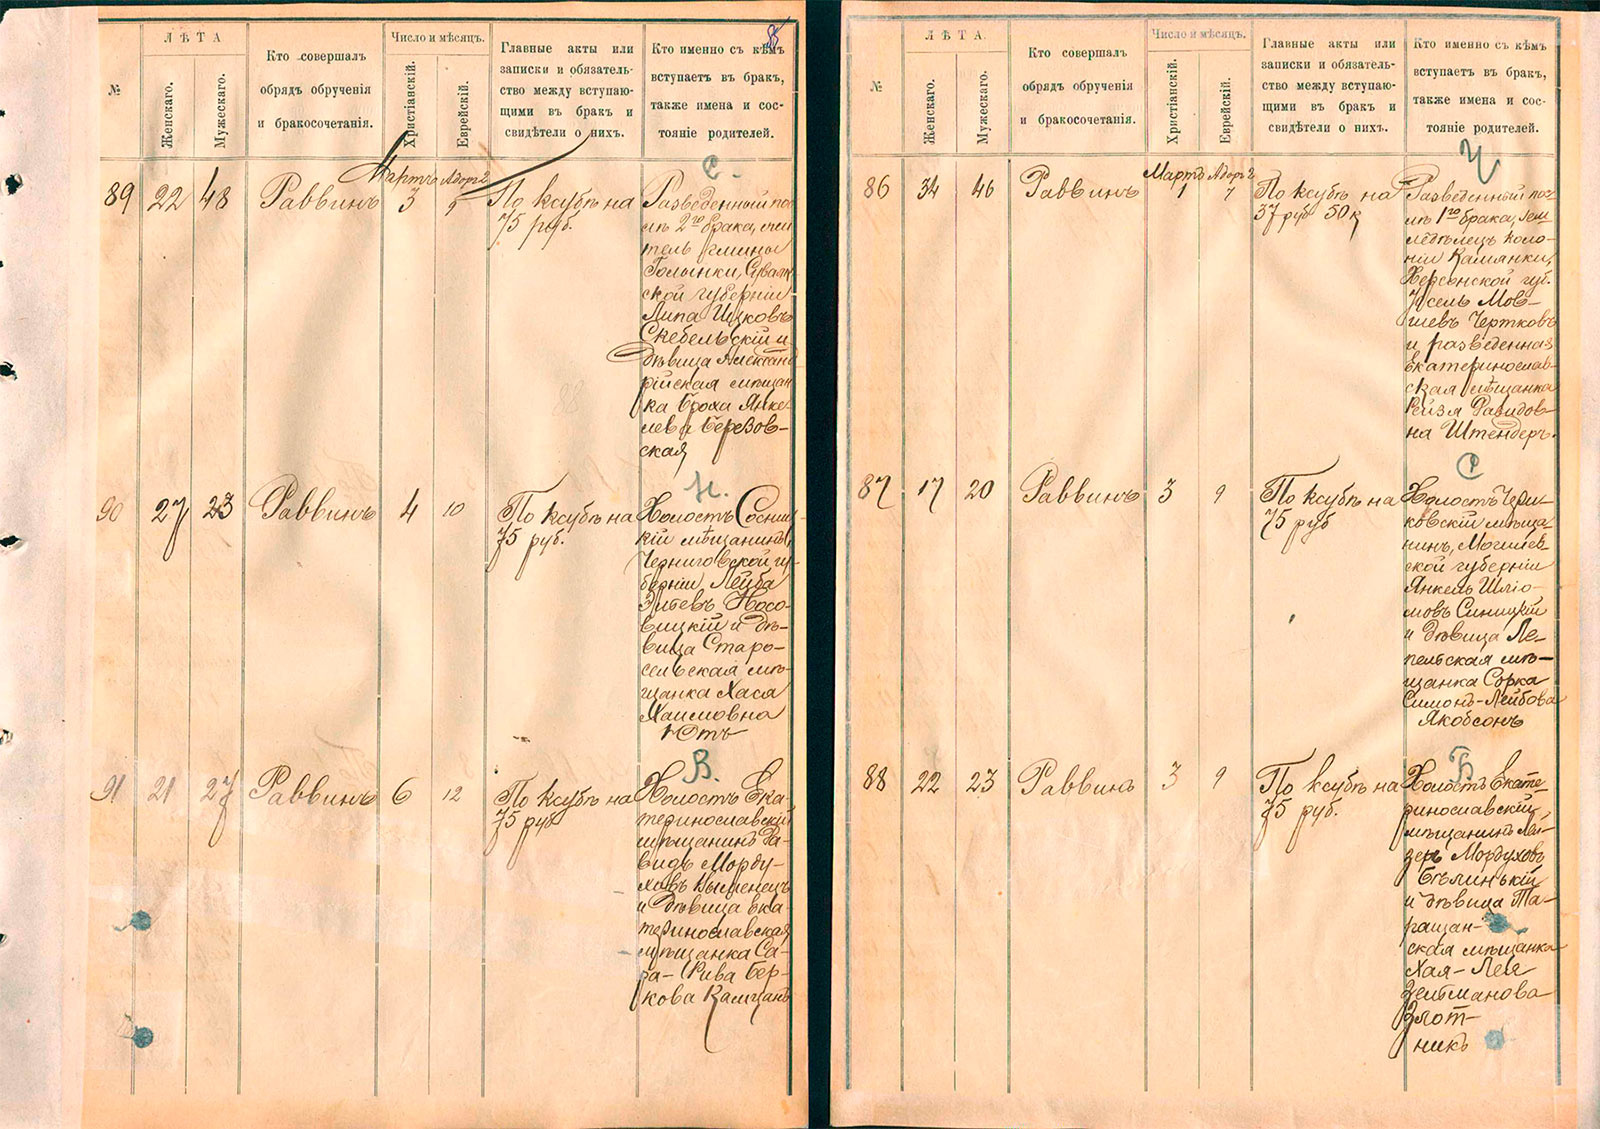 85
№
ЛѢТА
Женскаго.
Мужескаго.
Кто совершалъ
обрядъ обрученія
и бракосочетанія.
Число и мѣсяцъ.
Христіанскій.
Еврейскій.
Главные акты или
записки и обязатель-
ство между вступаю-
щими въ бракъ и
свидѣтели о нихъ.
Кто именно съ кѣмъ
вступаетъ въ бракъ,
также имена и сос-
тояніе родителей.
С.
Мартъ Адоръ 2
89 22 48 Раввинъ 3 9
По ксубѣ на
75 руб.
Разведенный по-
слѣ 2го брака, жи-
тель гмины
Голынки, Сувалк-
ской губерніи
Липа Ицковъ
Скебельскій и
дѣвица Александ-
рійская мѣщан-
ка Броха Янке-
лева Березов-
ская
Н.
90 27 23 Раввинъ 4 10
По ксубѣ на
75 руб.
Холостъ Сосниц-
кій мѣщанинъ,
Черниговской гу-
берніи, Лейба
Носо-
вицкій и дѣ-
вица Старо-
сельская мѣ-
щанка Хася
Хаимовна
Ютъ
В.
91 21 27 Раввинъ 6 12
По ксубѣ на
75 руб
Холостъ Ека-
теринославскій
мѣщанинъ Да-
видъ Морду-
ховъ
и дѣвица Ека-
теринославская
мѣщанка Са-
ра-Рива Бер-
кова Камцанъ
№
ЛѢТА.
Женскаго.
Мужескаго.
Кто совершалъ
обрядъ обрученія
и бракосочетанія.
Число и мѣсяцъ.
Христіанскій.
Еврейскій.
Главные акты или
записки и обязатель-
ство между вступаю-
щими въ бракъ и
свидѣтели о нихъ.
Кто именно съ кѣмъ
вступаетъ въ бракъ,
также имена и сос-
тояніе родителей.
Ч
Мартъ Адоръ 2
86 34 46 Раввинъ 1 7
По ксубѣ на
37 руб 50 к
Разведенный по-
слѣ 1го брака, зем-
ледѣлецъ коло-
ніи Камянки,
Херсонской губ.
Усель Мов-
шевъ Чертковъ
и разведенная
Екатеринослав-
ская мѣщанка
Рейзя Давидов-
на Штендеръ.
С
87 17 20 Раввинъ 3 9
По ксубѣ на
75 руб
Холостъ Чери-
ковскій мѣща-
нинъ, Могилев-
ской губерніи
Янкель Шліо-
мовъ Синицкій
и дѣвица Ле-
пельская мѣ-
щанка Сорка
Симонъ-Лейбова
Якобсонъ
Б
88 22 23 Раввинъ 3 9
По ксубѣ на
75 руб.
Холостъ Екате-
ринославскій
мѣщанинъ Лей-
зеръ Мордуховъ
Бѣлинькій
и дѣвица Та-
ращан-
ская мѣщанка
Хая-Лея
Зельманова
Злот-
никъ